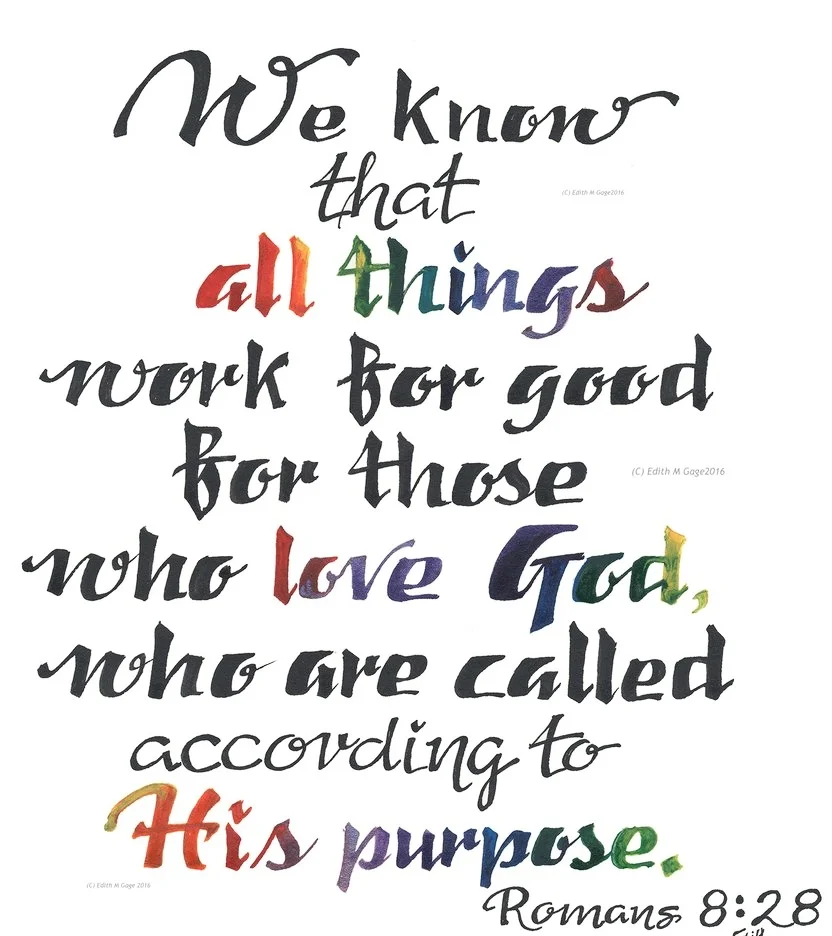 We know
that
(C) Edith M Gage2016
all things
work for good
for those
(C) Edith M Gage2016
who love God,
who are called
according to
His purpose.
(C) Edith M Gage 2016
Romans 8:28